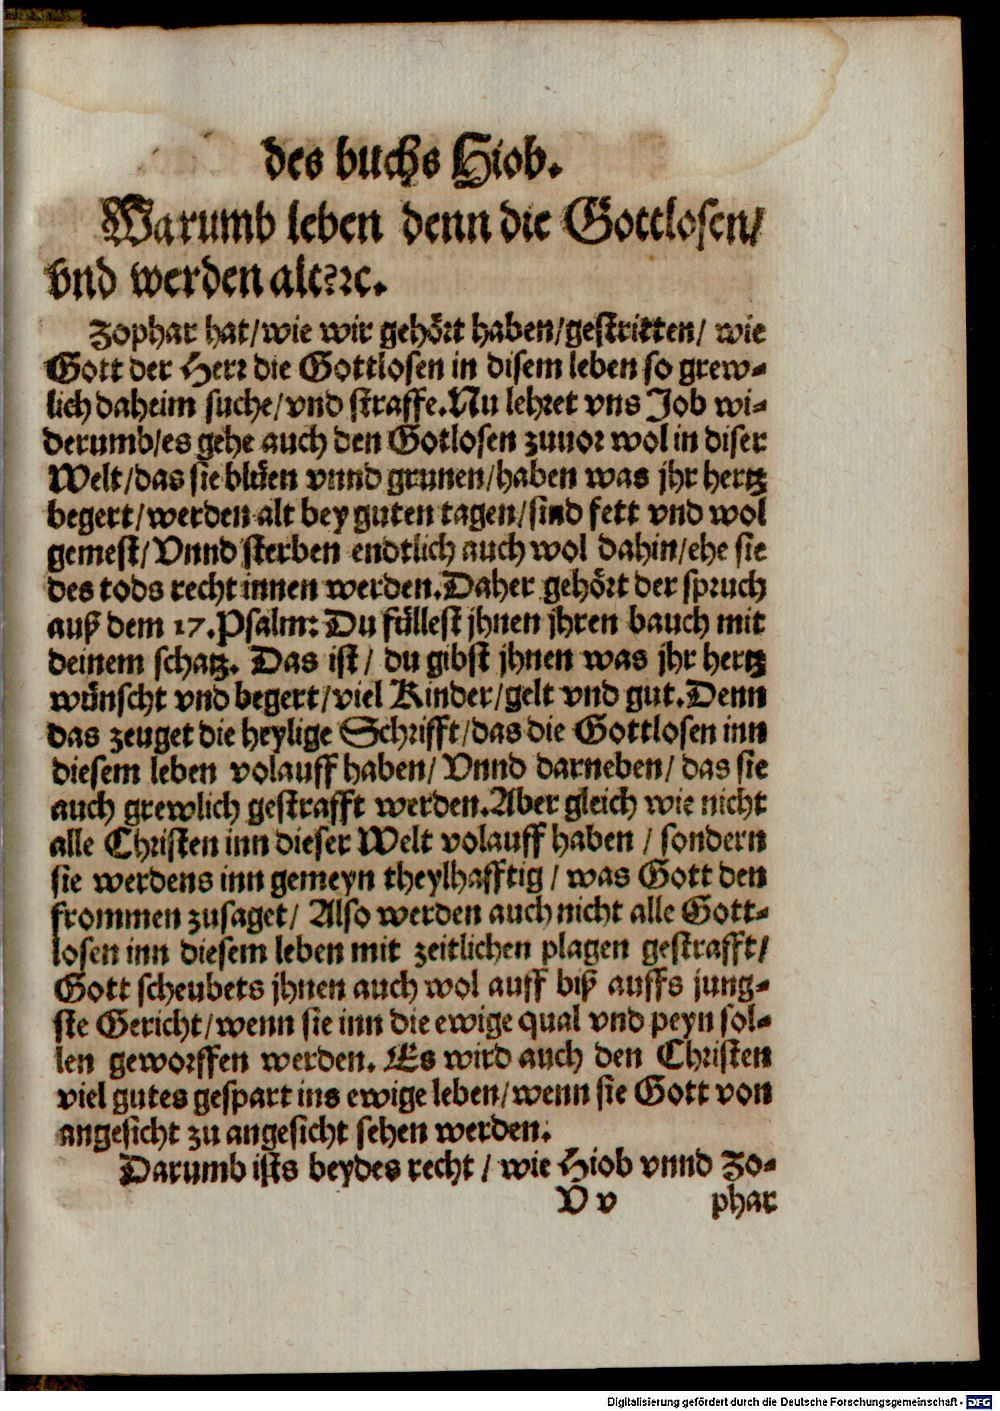 des buchs Hiob.
Warumb leben denn die Gottlosen/
vnd werden alt?ꝛc.
Zophar hat/wie wir gehört haben/gestritten/ wie
Gott der Herr die Gottlosen in disem leben so grew-
lich daheim suche/vnd straffe.Nu lehret vns Job wi-
derumb/es gehe auch den Gotlosen zuuor wol in diser
Welt/das sie blüen vnnd grunen/haben was jhr hertz
begert/werden alt bey guten tagen/sind fett vnd wol
gemest/Vnnd sterben endtlich auch wol dahin/ehe sie
des tods recht innen werden.Daher gehört der spruch
auß dem 17.Psalm: Du füllest jhnen jhren bauch mit
deinem schatz. Das ist/ du gibst jhnen was jhr hertz
wünscht vnd begert/viel Kinder/gelt vnd gut.Denn
das zeuget die heylige Schrifft/das die Gottlosen inn
diesem leben volauff haben/ Vnnd darneben/ das sie
auch grewlich gestrafft werden.Aber gleich wie nicht
alle Christen inn dieser Welt volauff haben / sondern
sie werdens inn gemeyn theylhafftig / was Gott den
frommen zusaget/ Also werden auch nicht alle Gott-
losen inn diesem leben mit zeitlichen plagen gestrafft/
Gott scheubets jhnen auch wol auff biß auffs jung-
ste Gericht/wenn sie inn die ewige qual vnd peyn sol-
len geworffen werden. Es wird auch den Christen
viel gutes gespart ins ewige leben/wenn sie Gott von
angesicht zu angesicht sehen werden.
Darumb ists beydes recht / wie Hiob vnnd Zo-
V v phar
Digitalisierung gefördert durch die Deutsche Forschungsgemeinschaft - DFG